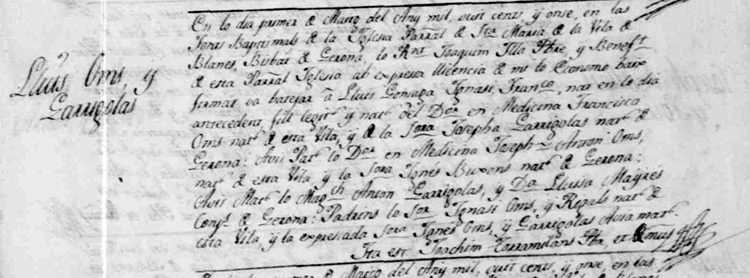 En lo dia primer de Mars del Any mil, vuit cents y onse, en las
fonts Baptismals de la Iglesia Parral de Sta Maria de la Vila de
Blanes, Bisbat de Gerona, lo Rnt Joaquim Illa Pbre, y Benefit
de esta Parral Iglesia ab expresa llicencia de mi lo Economo baix
firmat va batejar á Lluis Gonzaga, Ignasi, Franco, nat en lo dia
antecedent fill legitim y natl del Dor en Medicina Francisco
Oms natl de esta Vila, y de la Sora Josepha Garrigolas natl de
Gerona: Avis Patl lo Dor en Medicina Joseph Anton Oms,
natl de esta Vila, y la Sora Ignes Buxons natl de Gerona:
Avis Matl lo Magch Anton Garrigolas, y Da Lluisa Mayres
Conjs de Gerona: Padrins lo Sor Ignasi Oms, y Rigals natl de
esta Vila, y la expressada Sora Ignes Oms, y Garrigolas Avia matl
Ita est Joachim Torramilans Pbr. et Œmus
Lluis, Oms y
Garrigolas
de Mars del Any mil, vuit cents y onse, en las